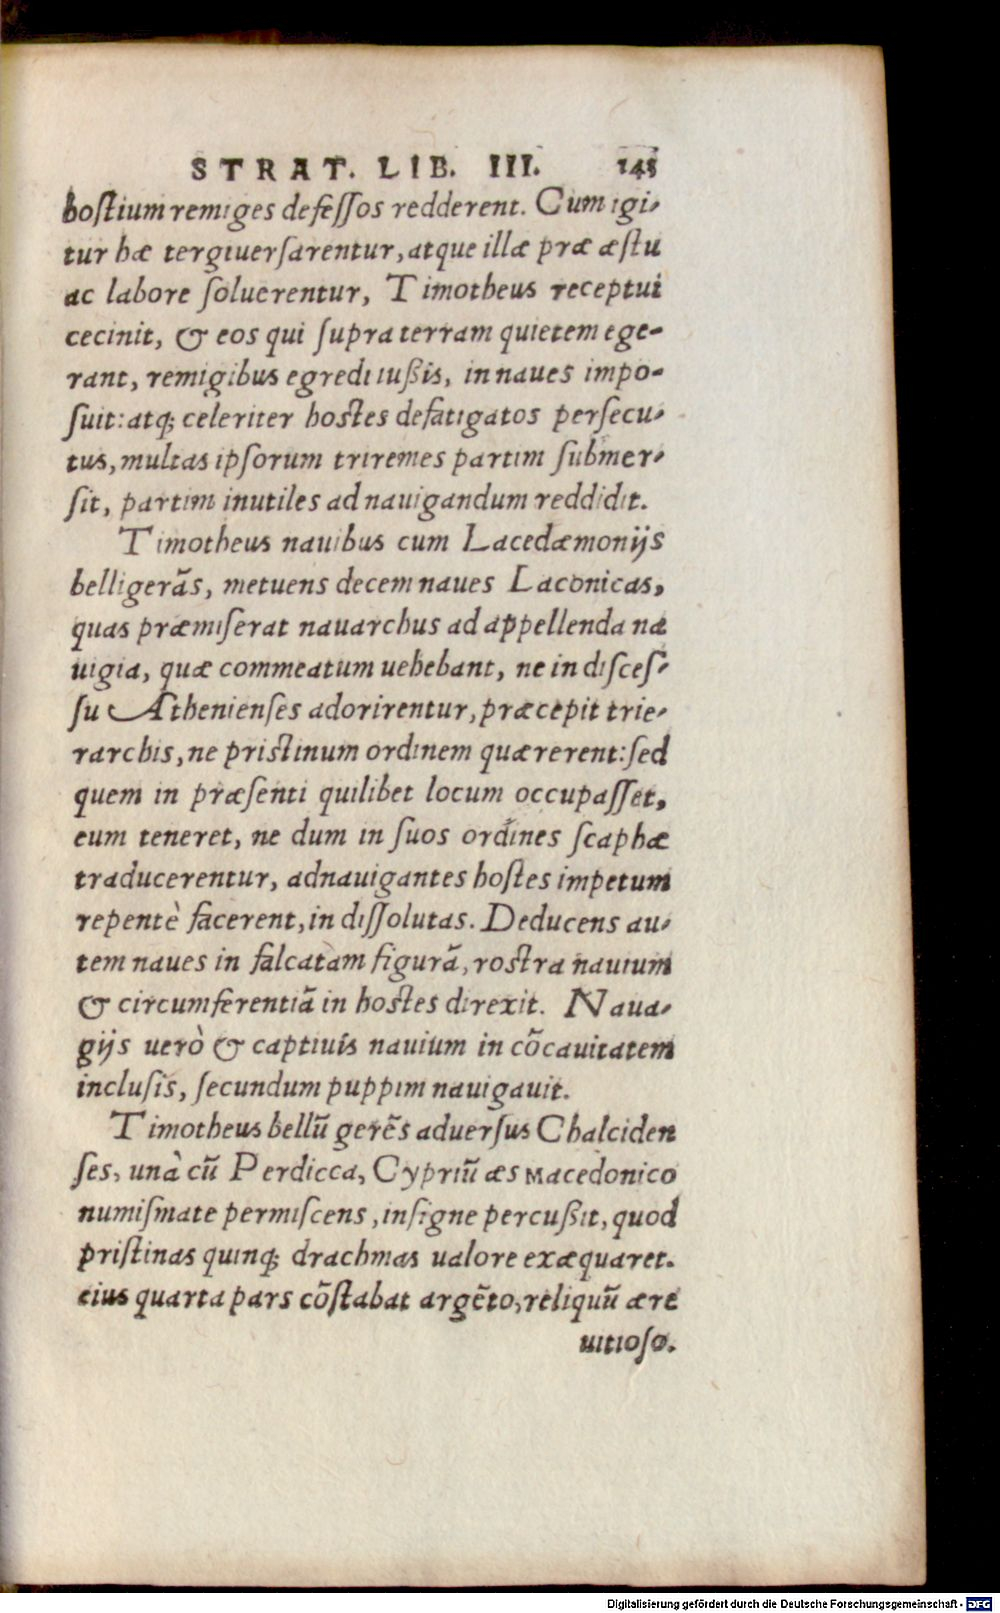 STRAT. LIB. III. 145
hoſtium remiges defeſſos redderent. Cum igi-
tur hæ tergiuerſarentur, atque illæ præ æſtu
ac labore ſoluerentur, Timotheus receptui
cecinit, & eos qui ſupra terram quietem ege-
rant, remigibus egredi iußis, in naues impo-
ſuit: atq; celeriter hoſtes defatigatos perſecu-
tus, multas ipſorum triremes partim ſubmer-
ſit, partim inutiles ad nauigandum reddidit.
Timotheus nauibus cum Lacedæmonijs
belligerãs, metuens decem naues Laconicas,
quas præmiſerat nauarchus ad appellenda na
uigia, quæ commeatum uehebant, ne in diſceſ-
ſu Athenienſes adorirentur, præcepit trie-
rarchis, ne priſtinum ordinem quærerent: ſed
quem in præſenti quilibet locum occupaſſet,
eum teneret, ne dum in ſuos ordines ſcaphæ
traducerentur, adnauigantes hoſtes impetum
repentè facerent, in diſſolutas. Deducens au-
tem naues in falcatam figurã, roſtra nauium
& circumferentiã in hoſtes direxit. Naua-
gijs uerò & captiuis nauium in cõcauitatem
incluſis, ſecundum puppim nauigauit.
Timotheus bellũ gerẽs aduerſus Chalciden
ſes, unà cũ Perdicca, Cypriũ æs Macedonico
numiſmate permiſcens, inſigne percußit, quod
priſtinas quinq; drachmas ualore exæquaret.
eius quarta pars cõſtabat argẽto, reliquũ ære
uitioſo.
Digitalisierung gefördert durch die Deutsche Forschungsgemeinschaft - DFG